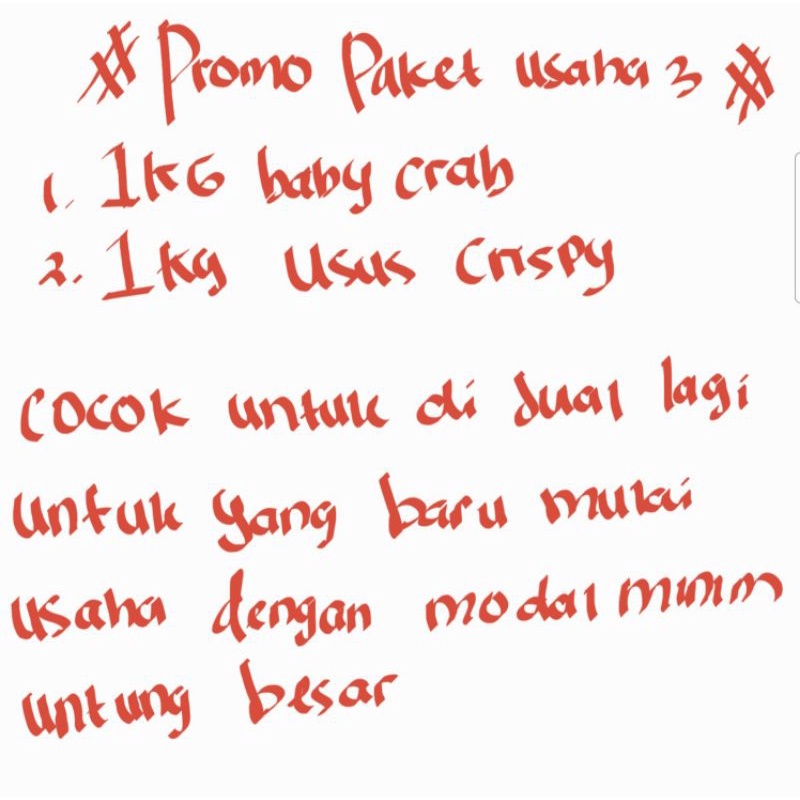 # Promo Paket usaha 3 #
1. 1KG baby crab
2. 1kg Usus Crispy
Cocok untuk di Jual lagi
Untuk yang baru mulai
usaha dengan modal minim
untung besar